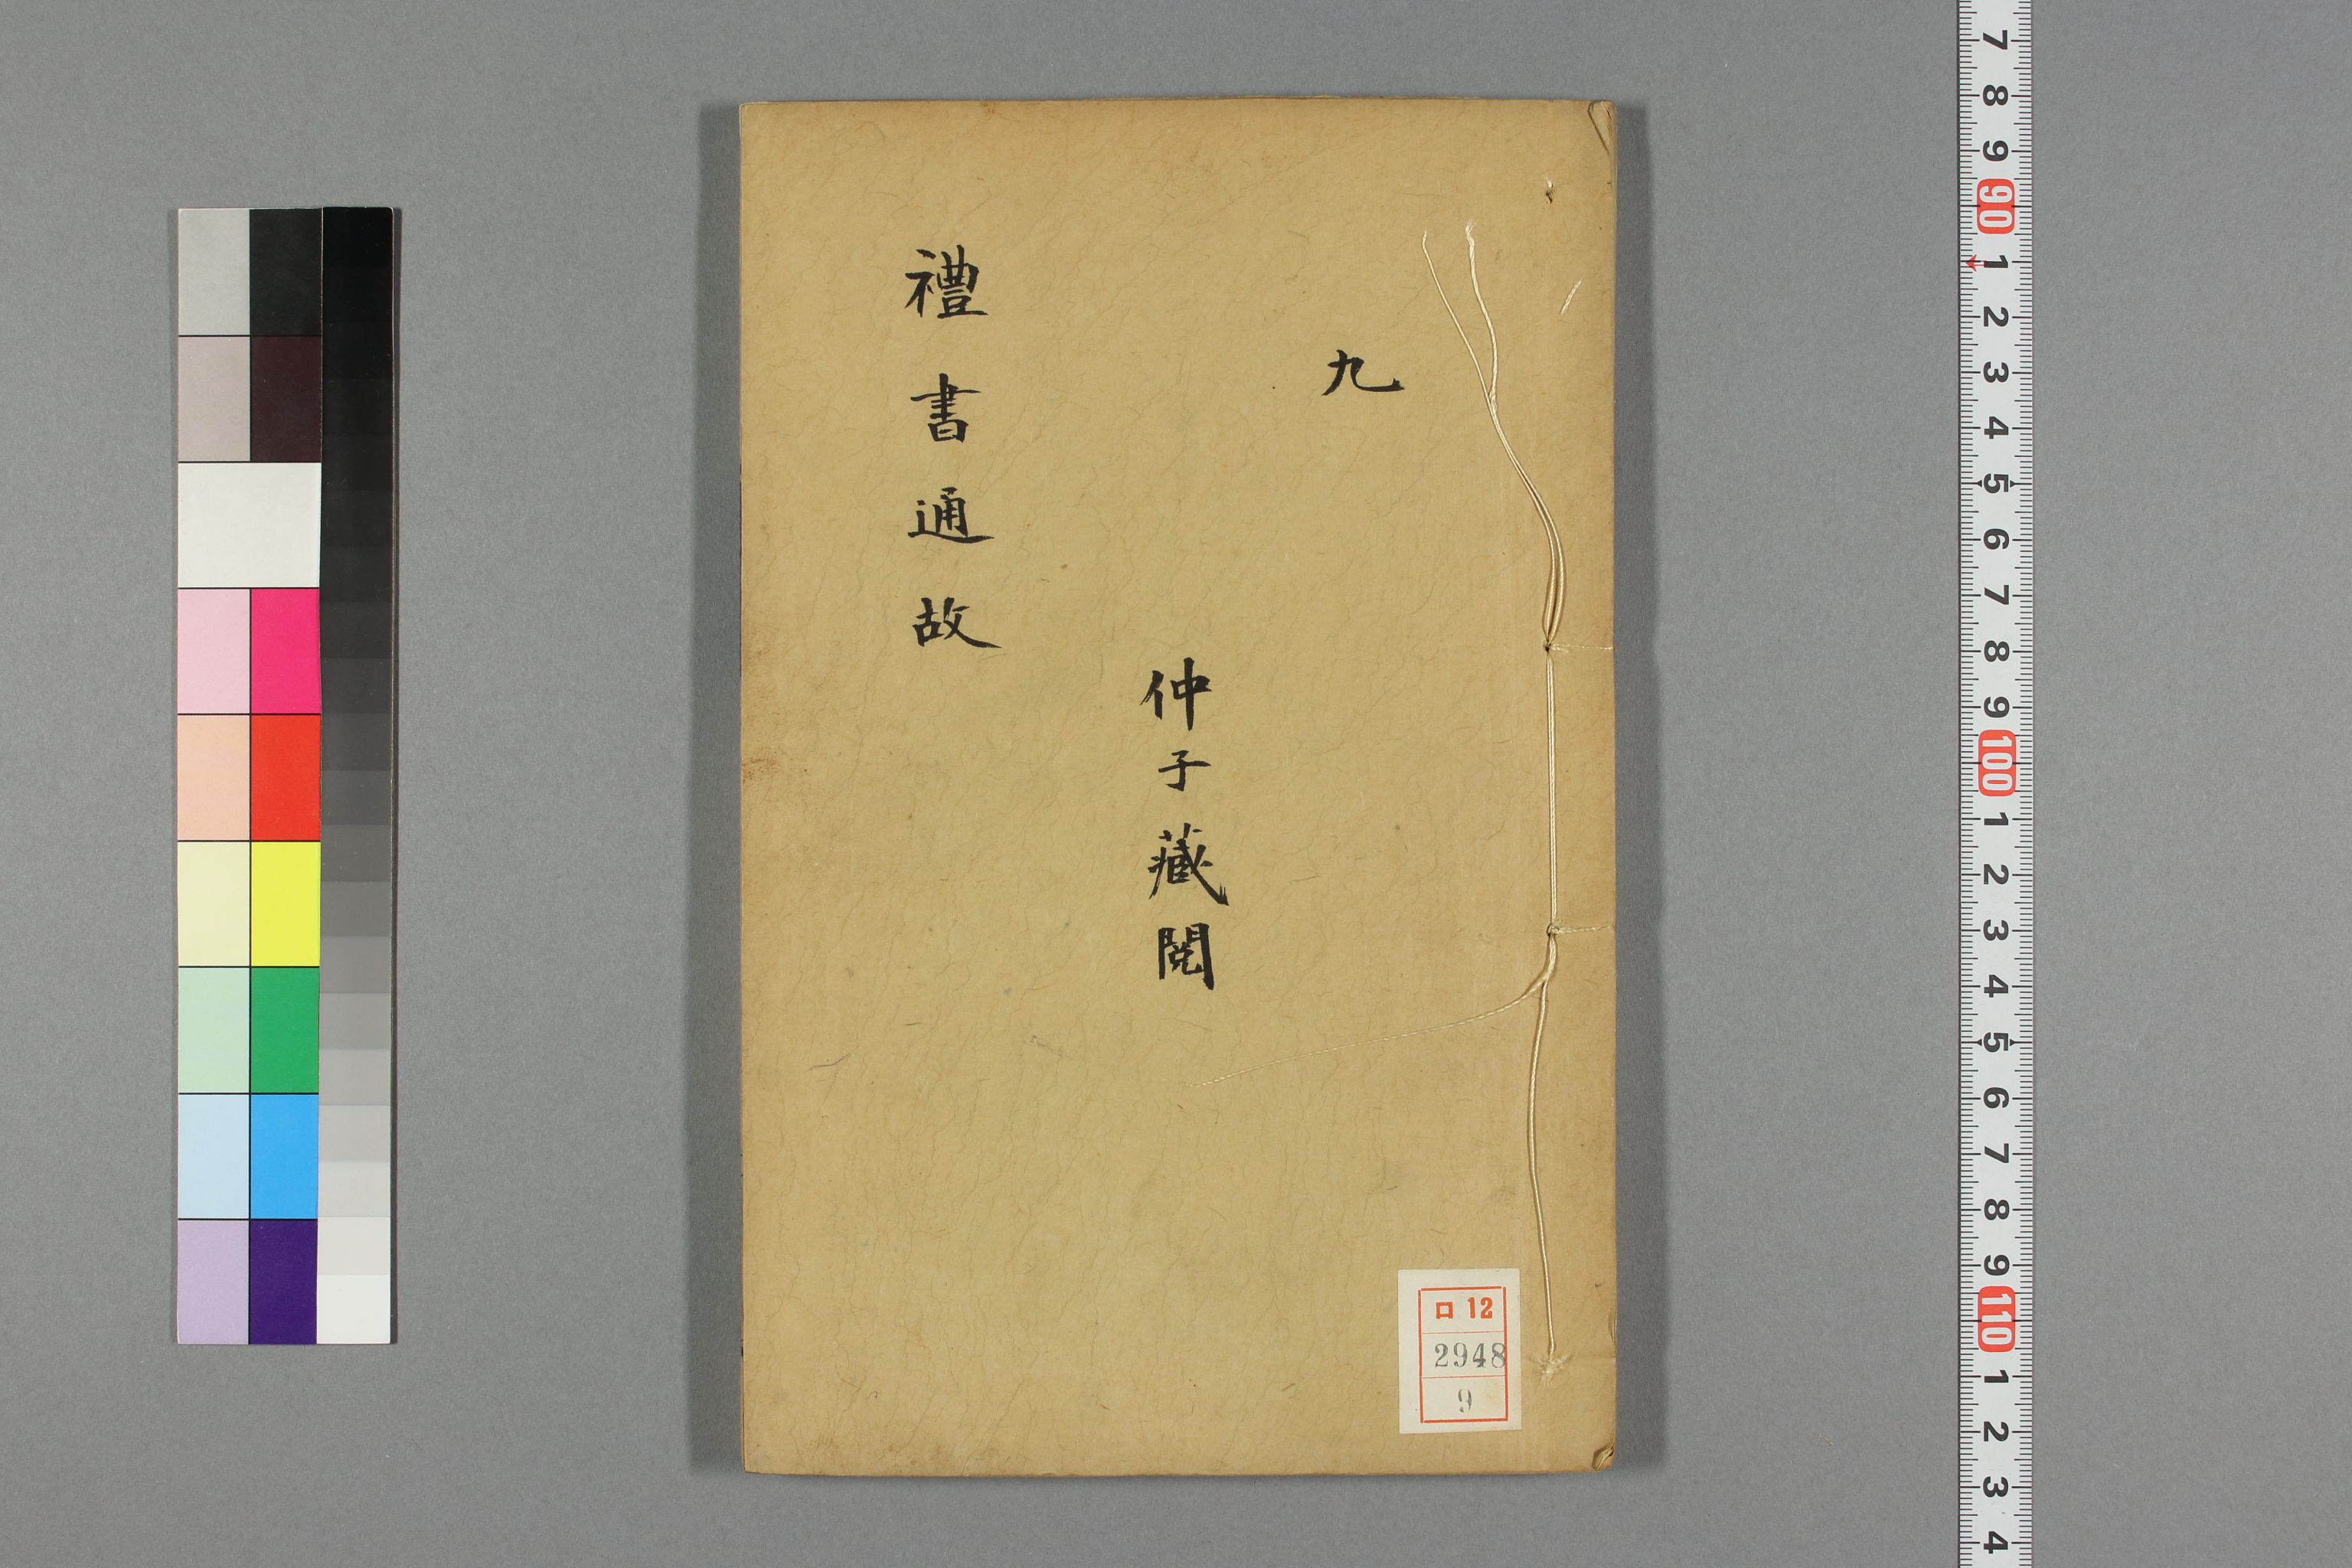 九
仲子藏閱
禮書通故
ロ 12
2948
9
7
8
9
90
1
2
3
4
5
6
7
8
9
100
1
2
3
4
5
6
7
8
9
110
1
2
3
4